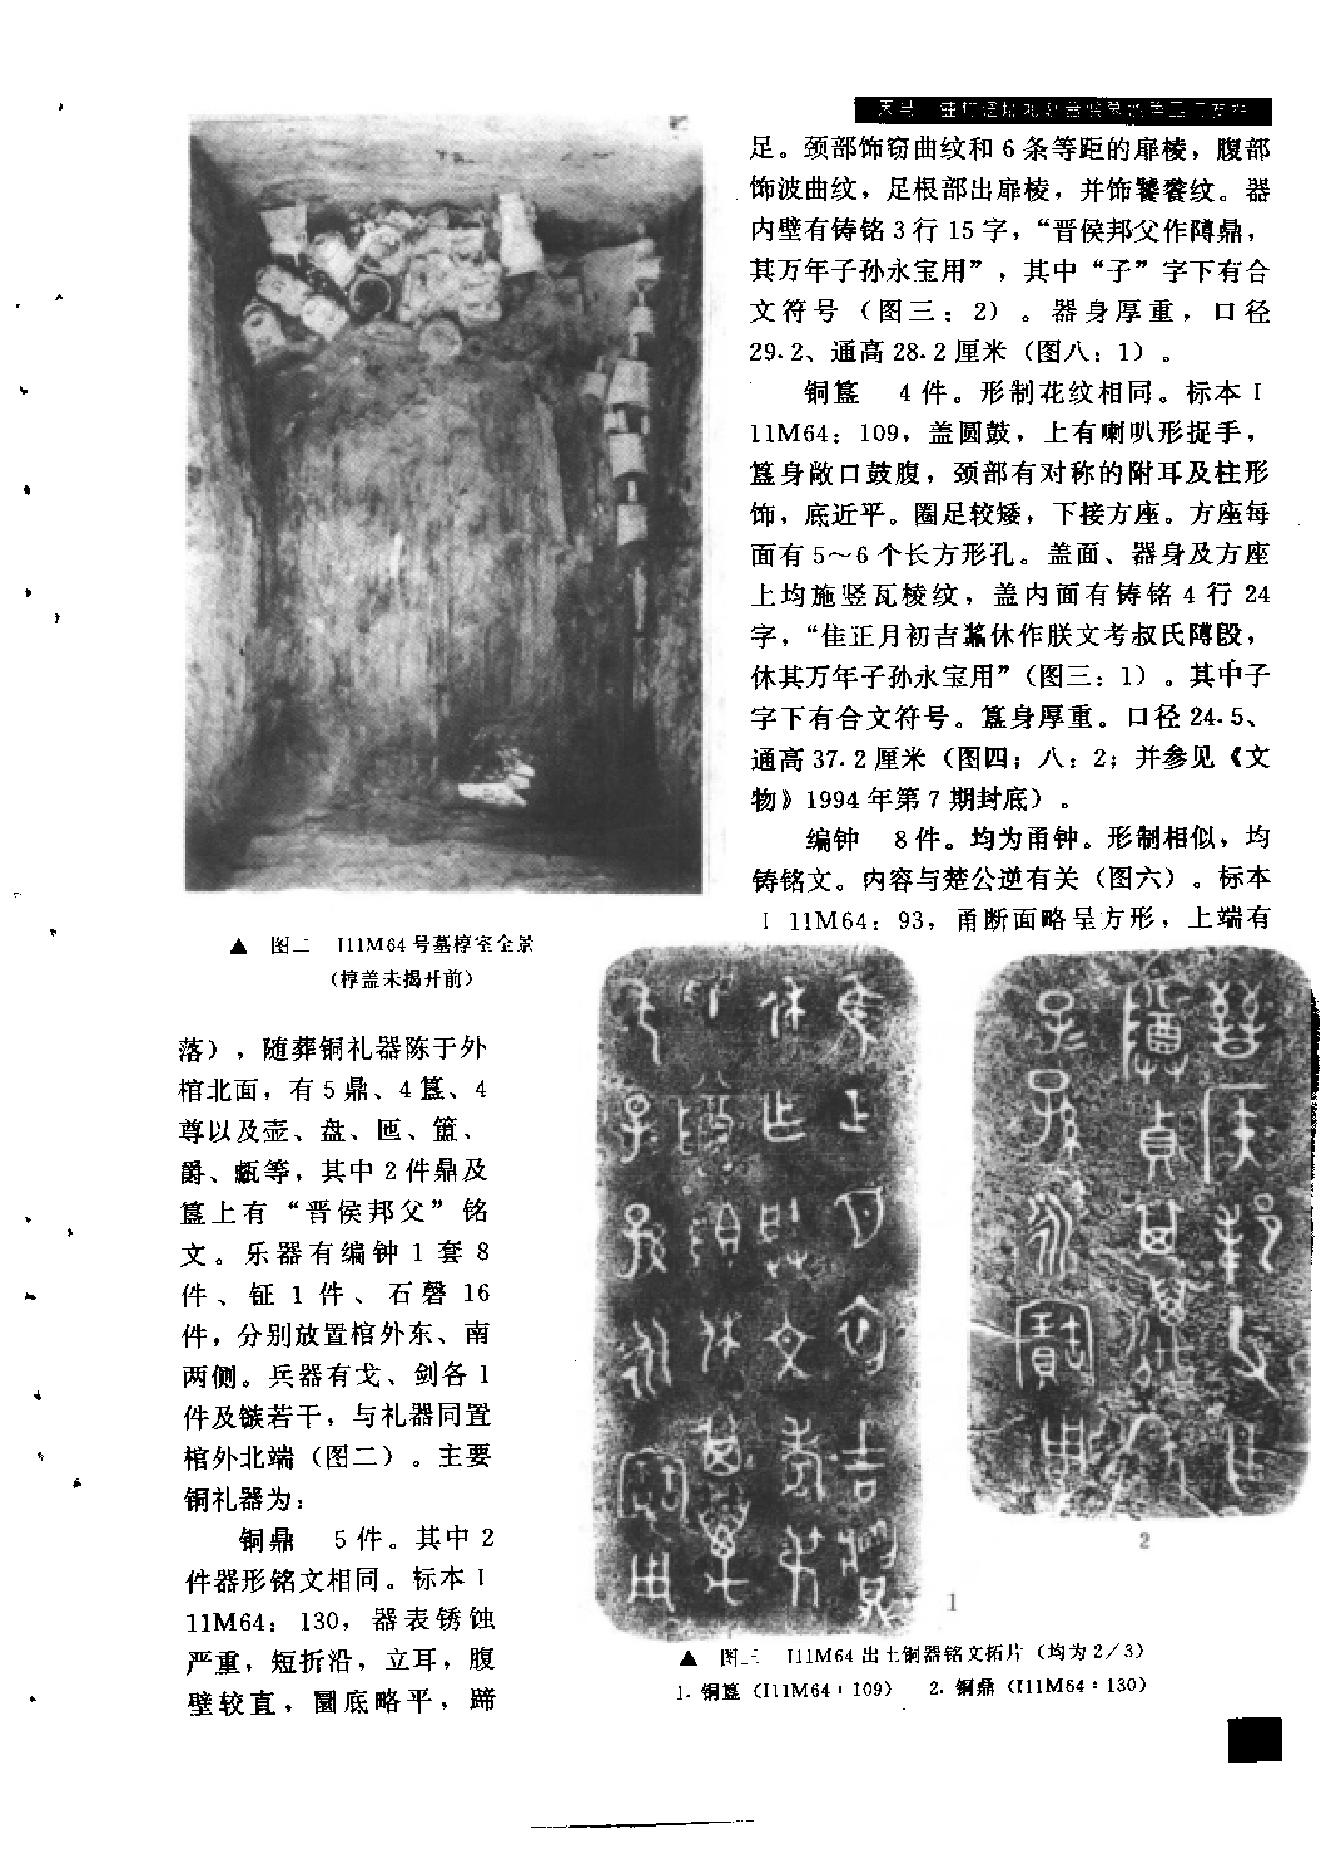 ▲ 图二 I11M64号墓椁室全景
(椁盖未揭开前)
落),随葬铜礼器陈于外
棺北面,有5鼎、4簋、4
尊以及壶、盘、匜、簠、
爵、甗等,其中2件鼎及
簋上有“晋侯邦父”铭
文。乐器有编钟1套8
件、钲1件、石磬16
件,分别放置棺外东、南
两侧。兵器有戈、剑各1
件及镞若干,与礼器同置
棺外北端(图二)。主要
铜礼器为:
铜鼎 5件。其中2
件器形铭文相同。标本I
11M64:130,器表锈蚀
严重,短折沿,立耳,腹
壁较直,圜底略平,蹄
足。颈部饰窃曲纹和6条等距的扉棱,腹部
饰波曲纹,足根部出扉棱,并饰饕餮纹。器
内壁有铸铭3行15字,“晋侯邦父作䵼鼎,
其万年子孙永宝用”,其中“子”字下有合
文符号(图三:2)。器身厚重,口径
29.2、通高28.2厘米(图八:1)。
铜簋 4件。形制花纹相同。标本I
11M64:109,盖圆鼓,上有喇叭形捉手,
簋身敞口鼓腹,颈部有对称的附耳及柱形
饰,底近平。圈足较矮,下接方座。方座每
面有5～6个长方形孔。盖面、器身及方座
上均施竖瓦棱纹,盖内面有铸铭4行24
字,“隹正月初吉 休作朕文考叔氏 𣪘,
休其万年子孙永宝用”(图三:1)。其中子
字下有合文符号。簋身厚重。口径24.5、
通高37.2厘米(图四;八:2;并参见《文
物》1994年第7期封底)。
编钟 8件。均为甬钟。形制相似,均
铸铭文。内容与楚公逆有关(图六)。标本
I 11M64:93,甬断面略呈方形,上端有
1
2
▲ 图三 I11M64出土铜器铭文拓片(均为2/3)
1.铜簋(I11M64:109) 2.铜鼎(I11M64:130)